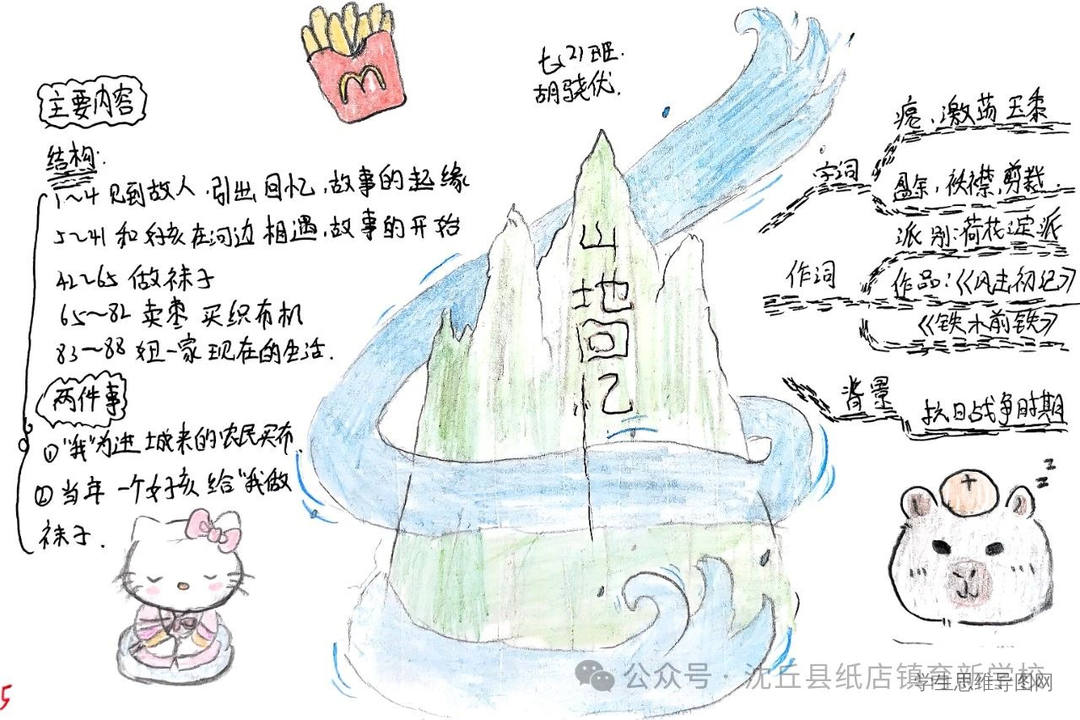 七(2)班.
胡骁优.
主要内容
结构:
1~4 见到故人,引出回忆,故事的起缘
5~41 和女孩在河边相遇,故事的开始
42~65 做袜子
65~82 卖枣 买织布机
83~88 妞一家现在的生活.
两件事
① "我"为进城来的农民买布
② 当年一个女孩给"我做
袜子.
山地回忆
字词
激荡 玉黍
盈余,袄襟,剪裁
作词
派别:荷花淀派
作品:《风云初记》
《铁木前传》
背景
抗日战争时期
z
z
5
公众号 · 沈丘县纸店镇育新学校
学生思维导图网